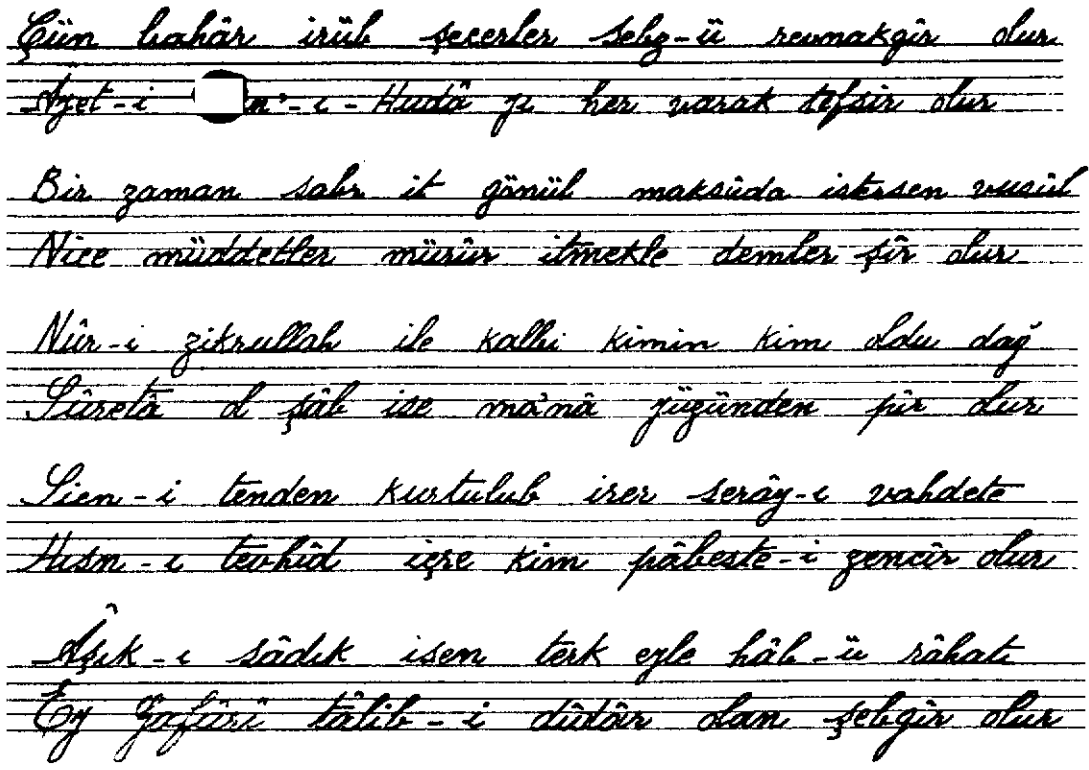 Çün bahâr irüb şecerler sebz-ü revnakgîr olur
Âyet-i n'-ı-Hudâ yı her varak tefsir olur
Bir zaman sabr it gönül maksûda istersen vusûl
Nice müddetler mürûr itmekle demler şîr olur
Nûr-ı zikrullah ile kalbi kimin kim oldu dağ
Sûretâ ol şâb ise ma'nâ yüzünden pîr olur
Sicn-i tenden kurtulub irer serây-ı vahdete
Hısn-ı tevhîd içre kim pâbeste-i zencîr olur
Âşık-ı sâdık isen terk eyle hâb-ü râhatı
Ey Gafûrî tâlib-i dîdâr olan şebgîr olur